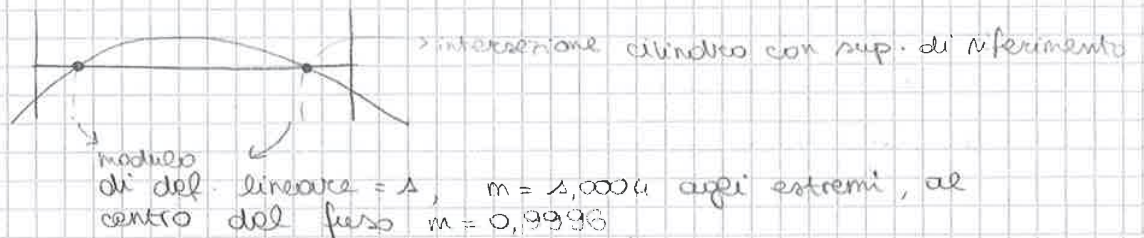 intersezione cilindro con sup. di riferimento
modulo
di def. lineare = 1, m = 1,0004 agli estremi, al
centro del fuso m = 0,9996